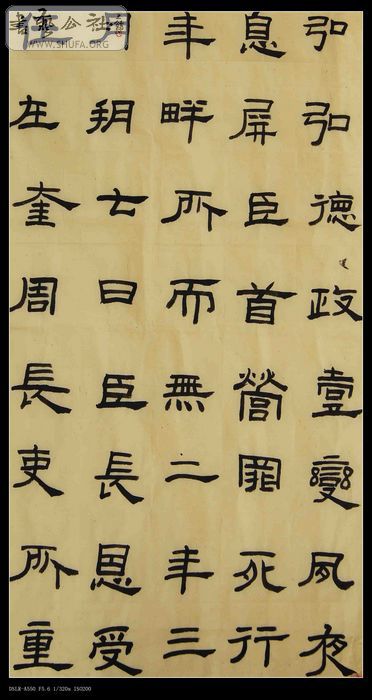 弘弘德政壹變夙夜
息屏臣首營罪死行
年畔所而無二年三
月朔七日臣長恩受
任在奎周長吏所重
書藝公社
WWW.SHUFA.ORG
DSLR-A550 F5.6 1/320s ISO200